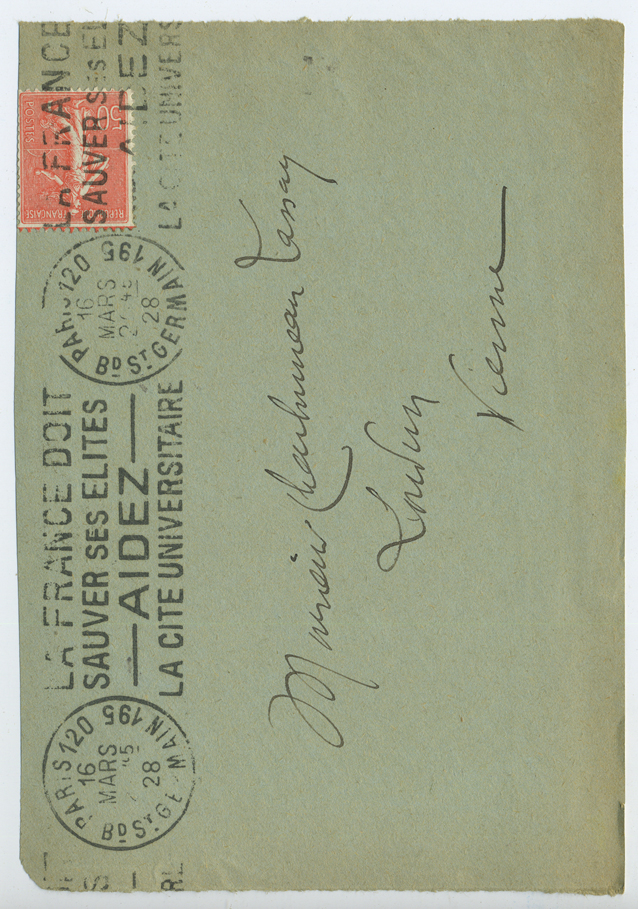 LA FRANCE DOIT
SAUVER SES ELITES
AIDEZ
LA CITE UNIVERSITAIRE
PARIS 120
195
16
MARS
28
BD ST GERMAIN
LA FRANCE
SAUVER SES EL
AIDEZ
LA CITE UNIVERS
PARIS 120
195
16
MARS
28
BD ST GERMAIN
50c
POSTES
FRANÇAISE
Monsieur Charbonneau Lassay
Loudun
Vienne